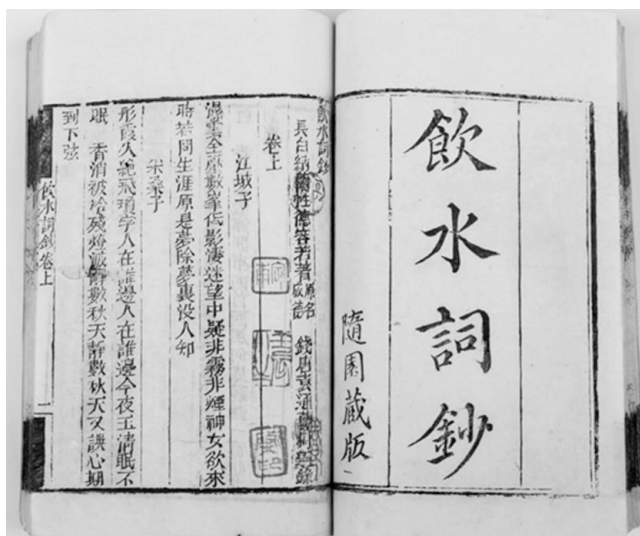 飲水詞鈔
隨園藏版
飲水詞鈔
長白納蘭性德容若著 原名成德 錢唐袁通
卷上
江城子
濕雲全壓數峯低影淒迷望中疑非霧非煙神女欲來
時若問生涯原是夢除夢裏没人知
采桑子
彤霞久絕飛瓊字人在誰邊人在誰邊今夜玉清眠不
眠 香消被冷殘燈滅靜數秋天靜數秋天又誤心期
到下弦
飲水詞鈔卷上 一